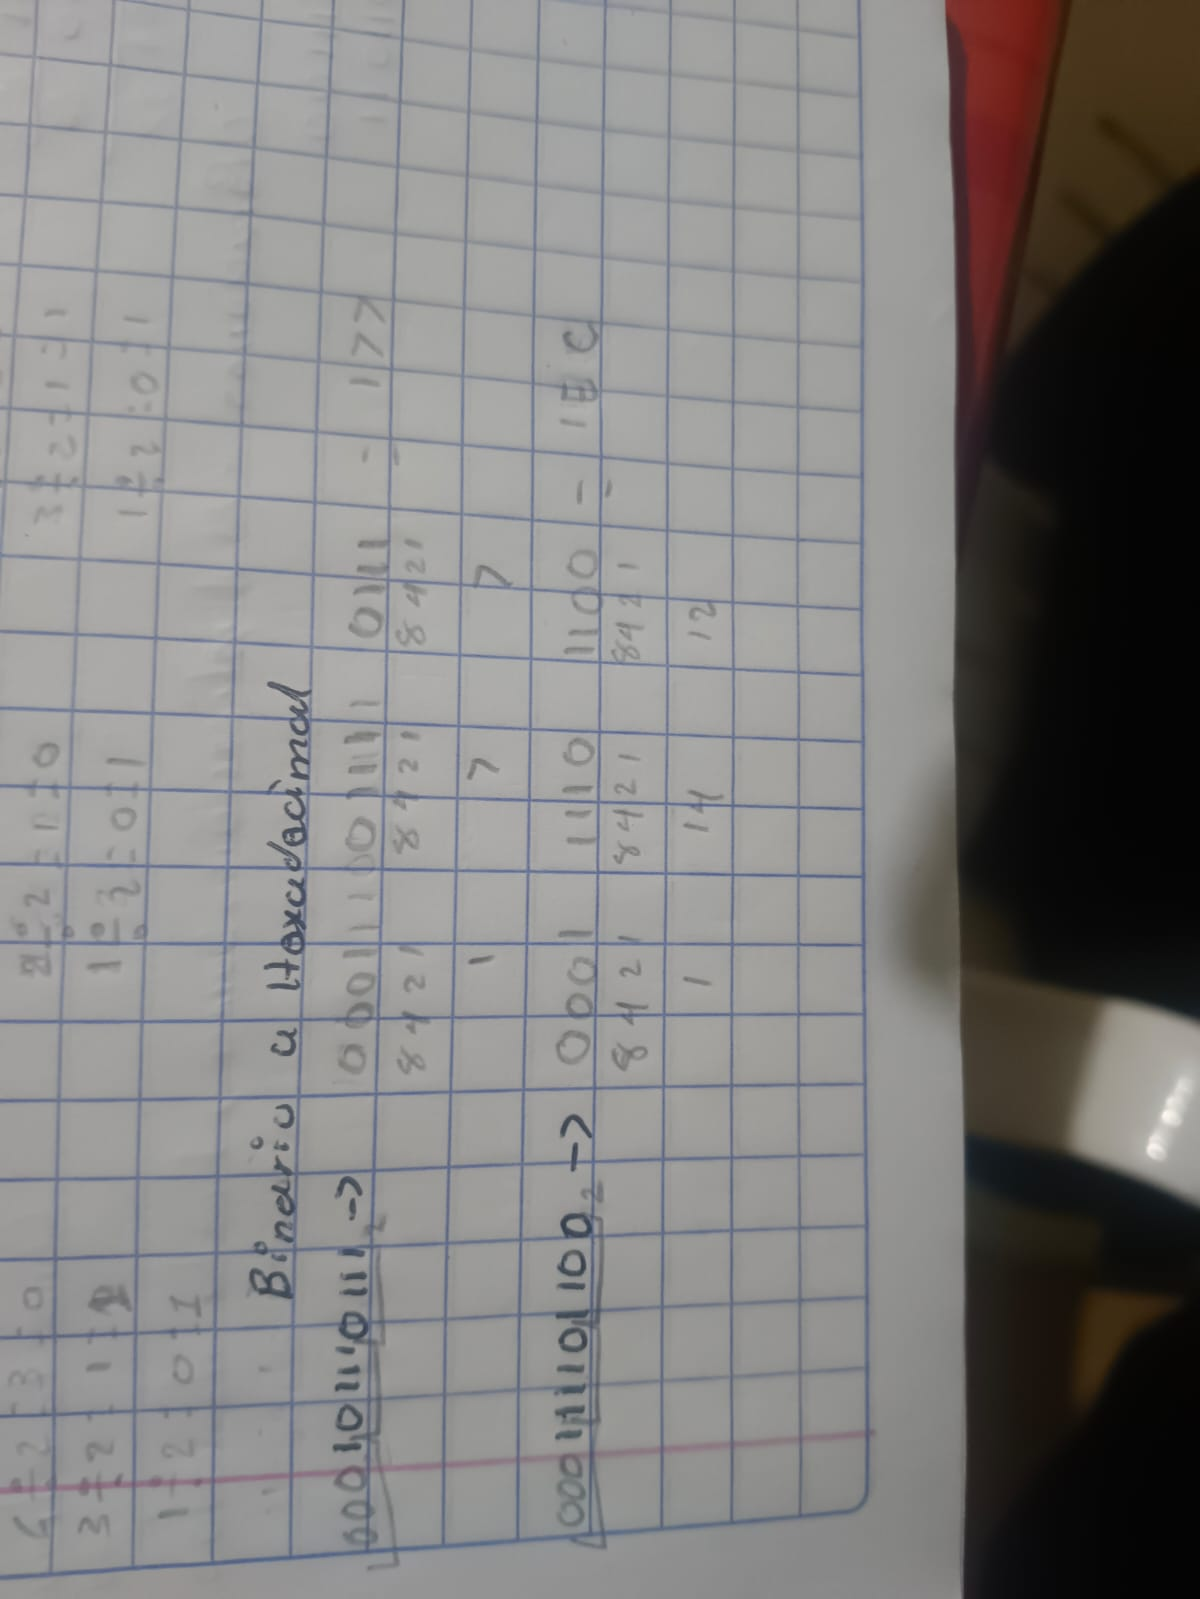 6 ÷ 2 = 3 = 0 2 ÷ 2 = 1 = 0 3 ÷ 2 = 1 = 1
3 ÷ 2 = 1 = 1 1 ÷ 2 = 0 = 1 1 ÷ 2 = 0 = 1
1 ÷ 2 = 0 = 1
Binario a Hexadecimal
000101110111₂ -> 0001 0111 0111 = 177
8421 8421 8421
1 7 7
000111101100₂ -> 0001 1110 1100 = 1EC
8421 8421 8421
1 14 12